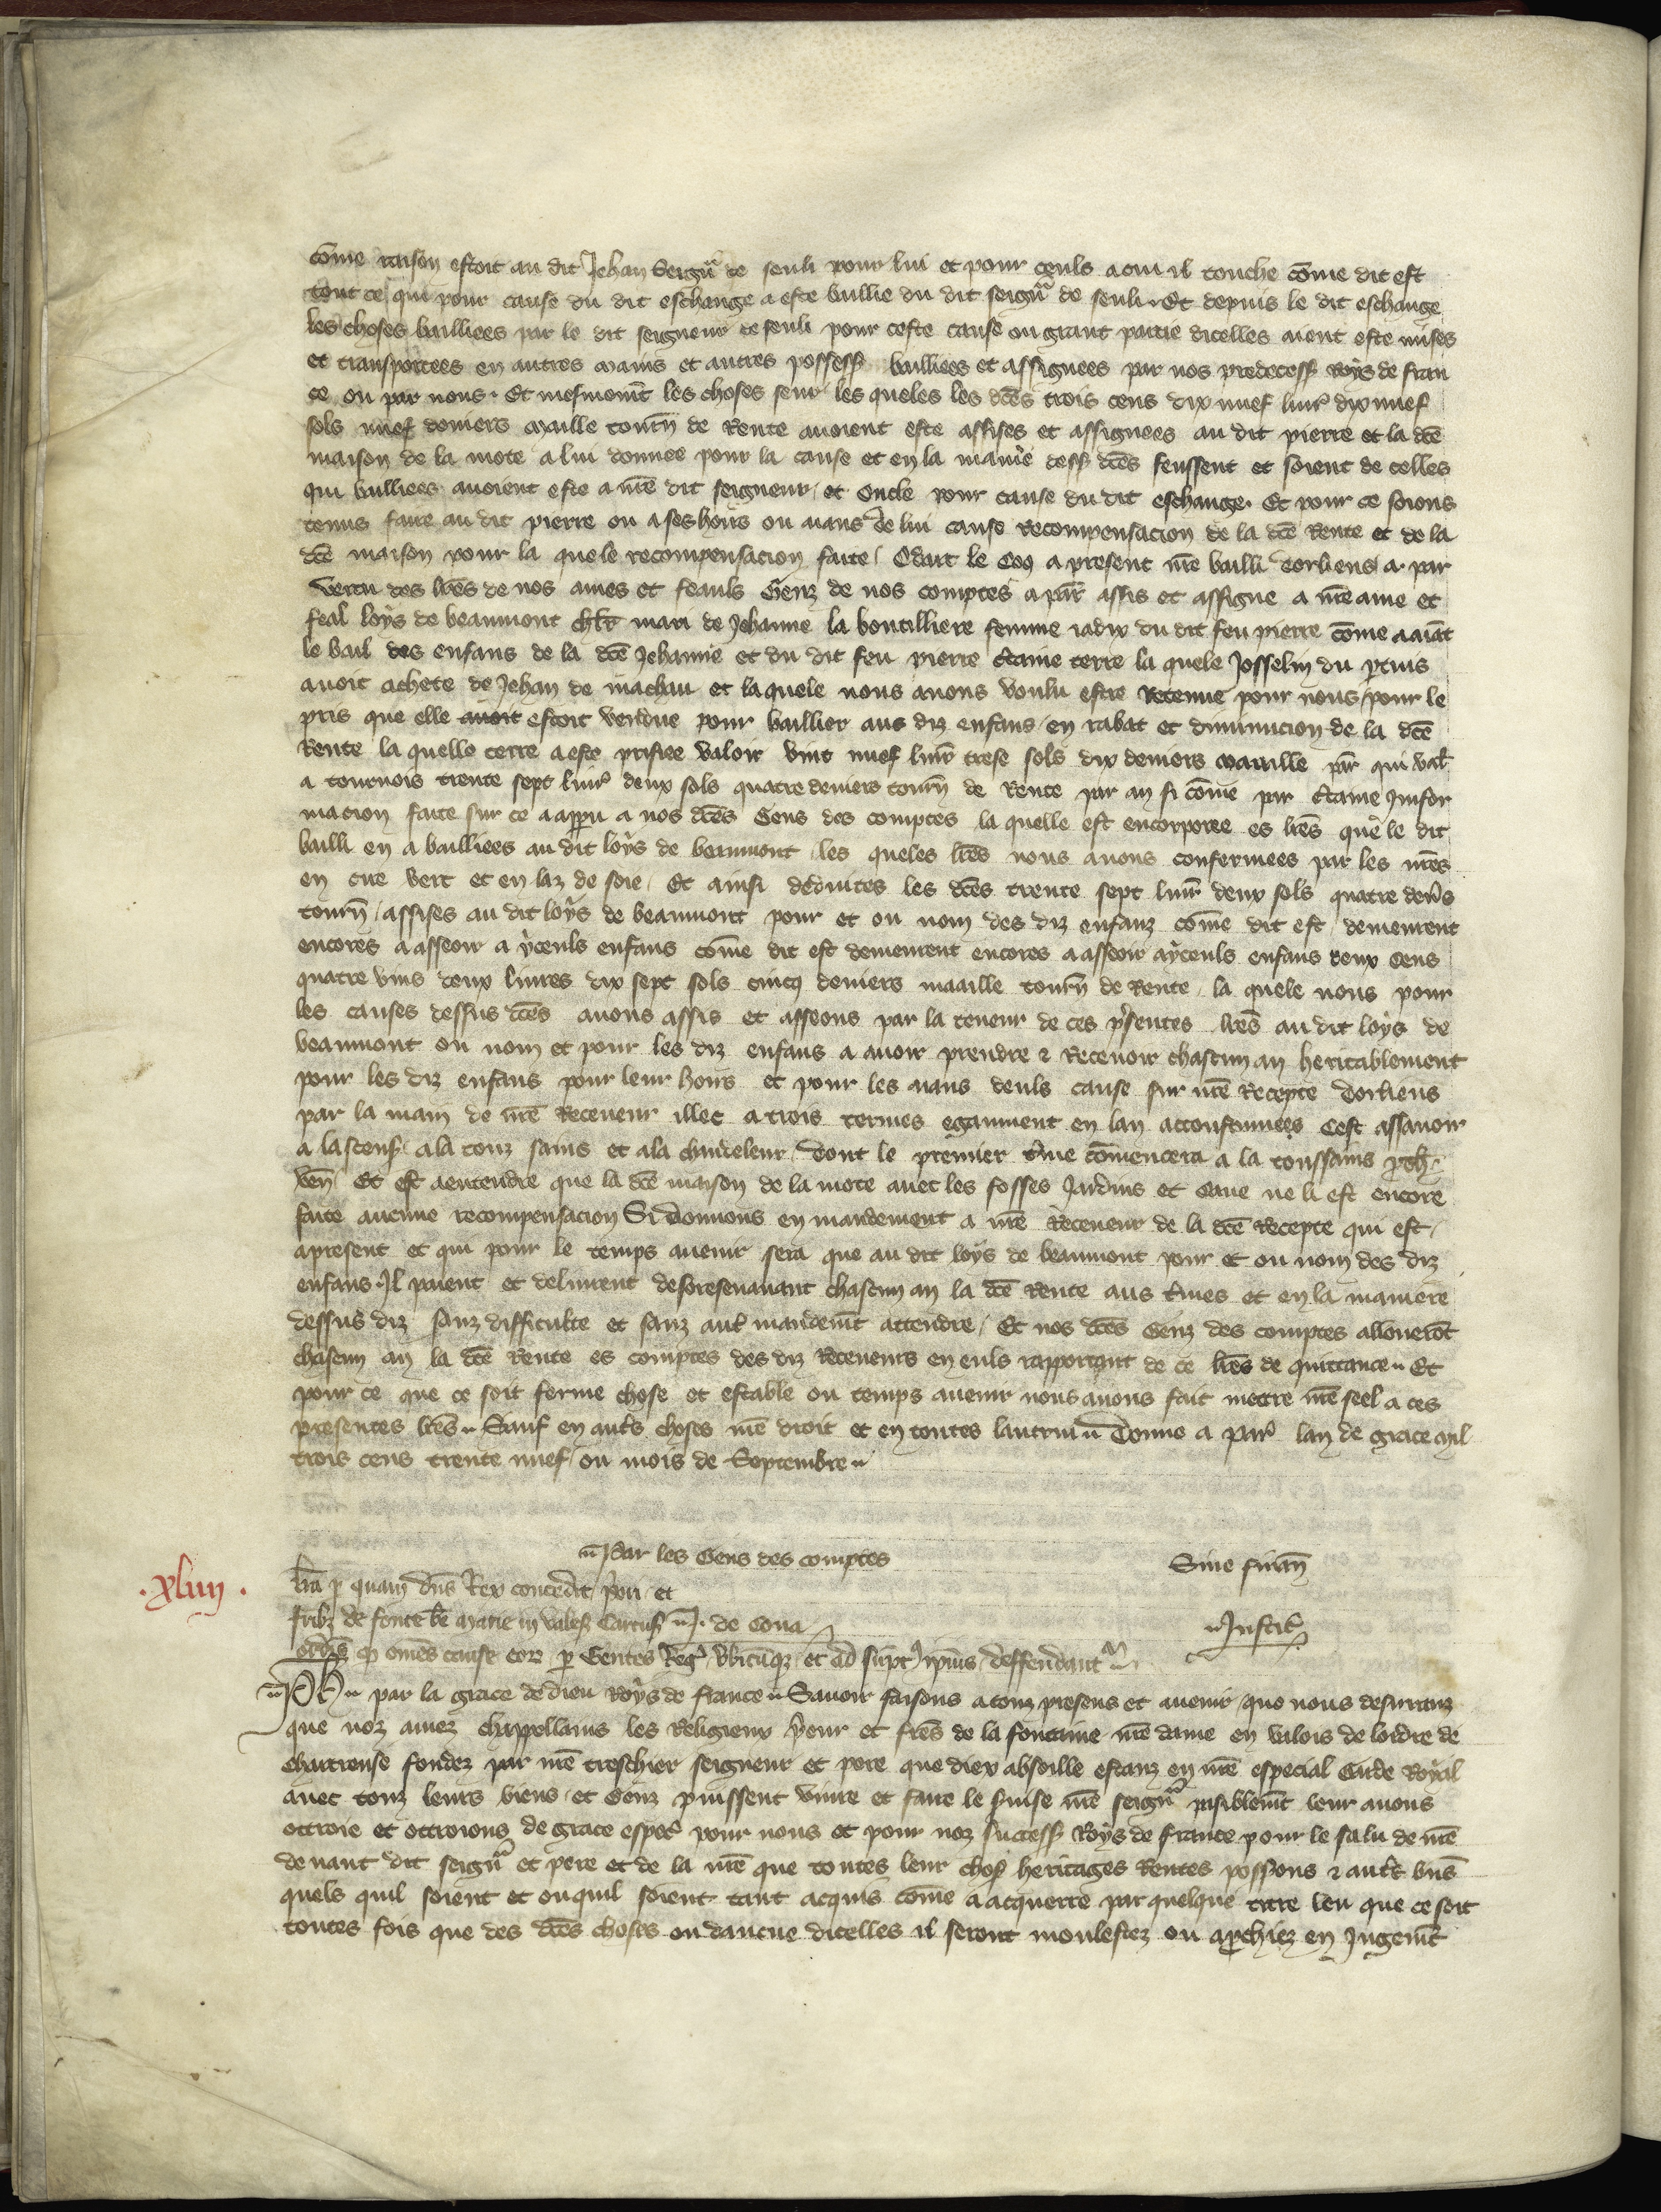 cõme raison estoit au dit Jehan Seigñr de seuli pour lui et pour ceuls a cui il touche cõme dit est
tout ce qui pour cause du dit eschange a este baillie du dit seigñr de seuli. Et depuis le dit eschange
les choses bailliees par le dit seigneur de seuli pour ceste cause ou grant partie dicelles aient este mises
et transportees en autres mains et autres possess bailliees et assignees par nos predecess Roys de fran
ce ou par nous. Et mesmem̃t les choses seur les queles les dc̃es trois cens dix nuef liur̃ dix nuef
sols nuef deniers maille tourñ de Rente auoient este assises et assignees au dit pierre et la dc̃e
maison de la mote a lui donnee pour la cause et en la manie dess dc̃es feussent et soient de celles
qui bailliees auoient este a nr̃e dit seigneur et oncle pour cause du dit eschange. Et pour ce soions
tenus faire au dit pierre ou a ses hoirs ou aians de lui cause Recompensacion de la dc̃e Rente et de la
dc̃e maison pour la quele recompensacion faire / Odart le Coq a present nr̃e bailli dorliens a par
vertu des lr̃es de nos ames et feauls Genz de nos comptes a par̃ assis et assigne a nr̃e ame et
feal loys de beaumont chlr̃ mari de Jehanne la boutilliere femme iadix du dit feu pierre cõme aiãt
le bail des enfans de la dc̃e Jehanne et du dit feu pierre c̃taine terre la quele Josselin du ptuis
auoit achete de Jehan de machau et la quele nous auons voulu estre Retenue pour nous pour le
pris que elle auoit estoit vendue pour baillier aus diz enfans en rabat et diminucion de la dc̃e
Rente la quelle terre a este prisiee valoir vint nuef liur̃ trese sols dix deniers maaille par̃ qui val̃
a tournois trente sept liur̃ deux sols quatre deniers tourñ de Rente par an si cõme par c̃taine Jnfor
macion faite sur ce a appu a nos dc̃es Gens des comptes la quelle est encorporee es lr̃es que le dit
bailli en a bailliees au dit loys de beaumont les queles lr̃es nous auons confermees par les nr̃es
en cire vert et en laz de soie. Et ainsi deduites les dc̃es trente sept liur̃ deux sols quatre deñs
tourñ / assises au dit loys de beaumont pour et ou nom des diz enfanz cõme dit est demeurent
encores a asseoir a yceuls enfans cõme dit est demeurent encores a asseoir a yceuls enfans deux Cens
quatre vins deux liures dix sept sols cincq deniers maaille tourñ de Rente la quele nous pour
les causes dessus dc̃es auons assis et asseons par la teneur de ces p̃sentes lr̃es au dit loys de
beaumont ou nom et pour les diz enfans a auoir prendre & Receuoir chascun an heritablement
pour les diz enfans pour leur hoirs et pour les aians deuls cause sur nr̃e Recepte dorliens
par la main de nr̃e Receueur illec a trois termes egaument en lan accoustumees Cest assauoir
a lascens a la touz sains et a la chandeleur dont le premier t̃me cõmencera a la toussains pch.
veñ Et est a entendre que la dc̃e maison de la mote auec les fosses Jardins et Caue ne li est encore
faite aucune recompensacion Si donnons en mandement a nr̃e Receueur de la dc̃e Recepte qui est
apresent et qui pour le temps auenir sera que au dit loys de beaumont pour et ou nom des diz
enfans Jl paient et deliurent desoresenauant chascun an la dc̃e Rente aus t̃mes et en la maniere
dessus diz sanz difficulte et sanz aut̃ mandem̃t attendre / Et nos dc̃es Genz des comptes allouerõt
chascun an la dc̃e Rente es comptes des diz Receueurs en euls rapportant de ce lr̃es de quittance Et
pour ce que ce soit ferme chose et estable ou temps auenir nous auons fait mettre nr̃e seel a ces
presentes lr̃es Sauf en aut̃s choses nr̃e droit et en toutes lautrui Donne a par̃ lan de grace mil
trois cens trente nuef ou mois de Septembre
Par les Gens des comptes Sine financ̃
.xliiij. lr̃a p quam dñs Rex concedit p̃ori et
frib; de fonte bẽ marie in vales Cartus J. de Cona Justic̃
ordĩs q omẽs cause eor p Gentes Reg̃ vbicũq; et ad sũpt ip̃ius deffendant̃
Ph par la grace de dieu Roys de france Sauoir faisons a touz presens et auenir que nous desirranz
que noz amez chappellains les Religieux p̃eur et frẽs de la fontaine nr̃e dame en valois de lordre de
chartreuse fondez par nr̃e treschier seigneur et pere que diex absoille estanz en nr̃e especial Garde Royal
auec touz leurs biens et Genz puissent viure et faire le seruise nr̃e seigñr paisiblem̃t leur auons
ottroie et ottroions de grace esp̃ec pour nous et pour noz success Roys de france pour le salu de nr̃e
deuant dit seigñr et pere et de la nr̃e que toutes leur chos heritages Rentes poss̃ons & aut̃s biñs
quels quil soient et ou quil soient tant acquis cõme a acquerre par quelque titre leu que ce soit
toutes fois que des dc̃es choses ou daucue dicelles il seront moulestez ou apchiez en Jugem̃t